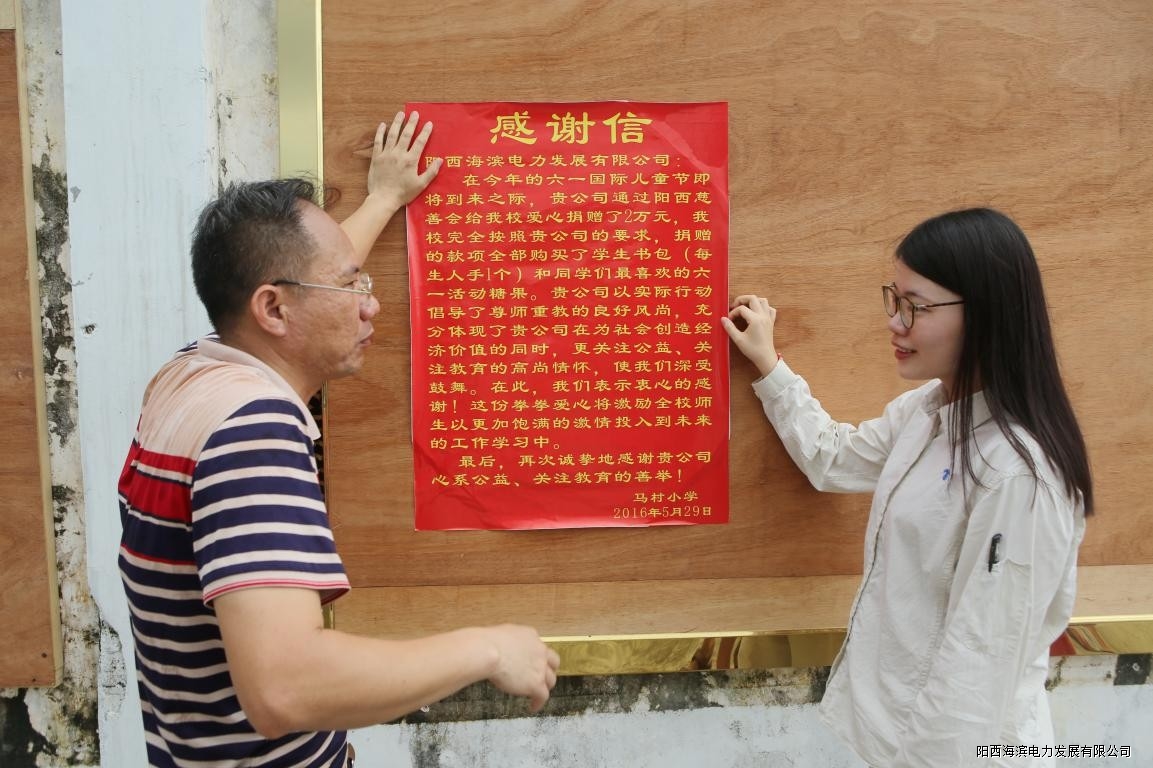 感谢信
阳西海滨电力发展有限公司：
在今年的六一国际儿童节即
将到来之际，贵公司通过阳西慈
善会给我校爱心捐赠了2万元，我
校完全按照贵公司的要求，捐赠
的款项全部购买了学生书包（每
生人手1个）和同学们最喜欢的六
一活动糖果。贵公司以实际行动
倡导了尊师重教的良好风尚，充
分体现了贵公司在为社会创造经
济价值的同时，更关注公益、关
注教育的高尚情怀，使我们深受
鼓舞。在此，我们表示衷心的感
谢！这份拳拳爱心将激励全校师
生以更加饱满的激情投入到未来
的工作学习中。
最后，再次诚挚地感谢贵公司
心系公益、关注教育的善举！
马村小学
2016年5月29日
阳西海滨电力发展有限公司